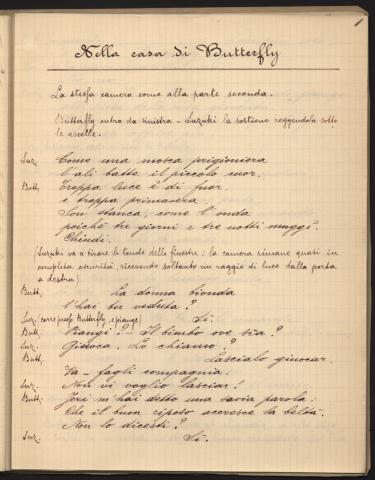 1
Nella casa di Butterfly
La stessa camera come alla parte seconda.
Butterfly entra da sinistra - Suzuki la sostiene reggendola sotto
le ascelle.
Suz. Come una mosca prigioniera
l'ali batte il piccolo cuor.
Butt. Troppa luce è di fuor
e troppa primavera
Son stanca, come l'onda
poichè tre giorni e tre notti mugge.
Chiudi.
(Suzuki va a tirare le tende delle finestre: la camera rimane quasi in
completa oscurità, ricevendo soltanto un raggio di luce dalla porta
a destra)
Butt. La donna bionda
l'hai tu veduta?
Suz. (corre presso Butterfly e piange) Sì.
Butt. Piangi? - Il bimbo ove sia?
Suz. Giuoca. Lo chiamo?
Butt. Lascialo giuocar.
Va - fagli compagnia.
Suz. Non vi voglio lasciar!
Butt. Jeri m'hai detto una savia parola:
Che il buon riposo accresce la beltà.
Non lo dicesti?
Suz. Sì.